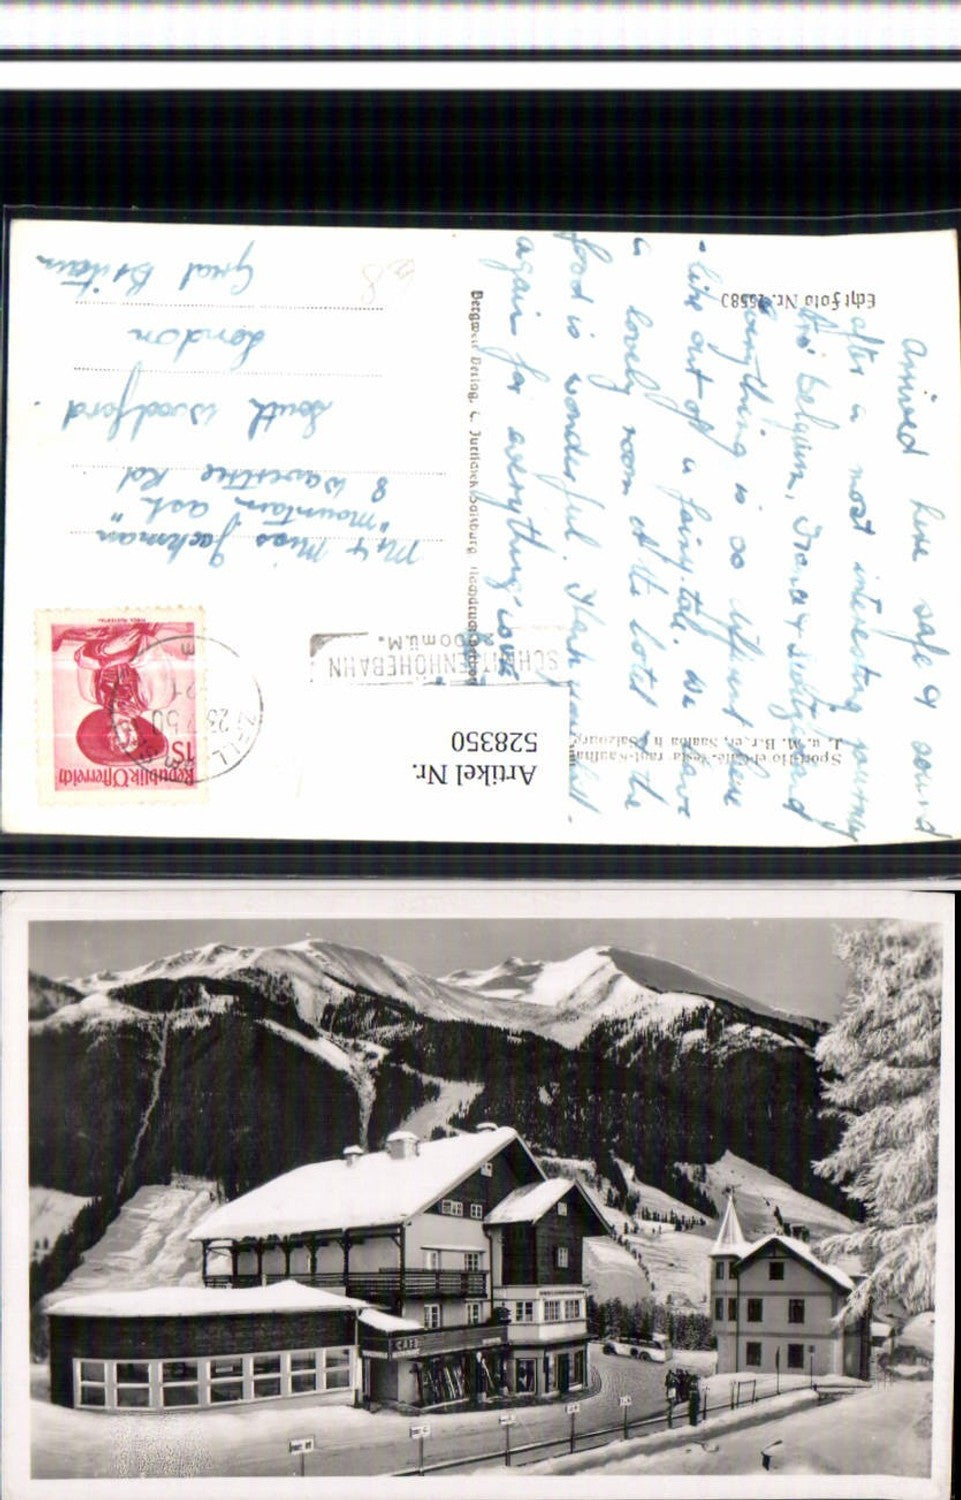 Arrived here safe & sound
after a most interesting journey
thro' Belgium, France & Switzerland
Everything is so different here
- like out of a fairy-tale. We have
a lovely room at the hotel & the
food is wonderful. Thank you all
again for everything.
Mr & Miss Jackman
"Mountain Ash"
8 Wavertree Rd
South Woodford
London
Great Britain
28
Echt Foto Nr.
Sporthotel
Saalbach Salzburg
Republik Österreich
1S
ZELL AM SEE
SCHMITTENHÖHEBAHN
2000 m ü.M.
Artikel Nr.
528350
CAFE